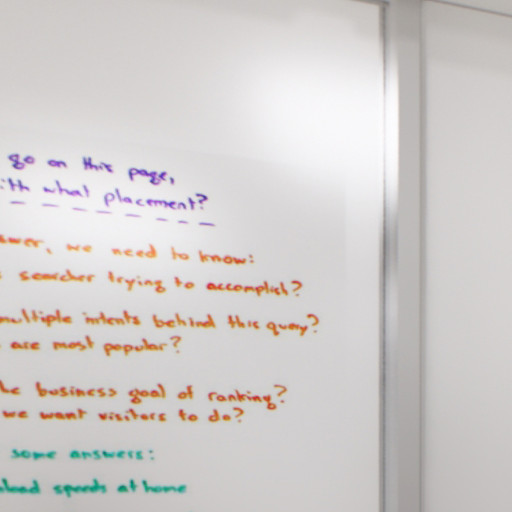 go on this page,
ith what placement?
swer, we need to know:
searcher trying to accomplish?
multiple intents behind this query?
are most popular?
he business goal of ranking?
we want visitors to do?
some answers:
nload speeds at home